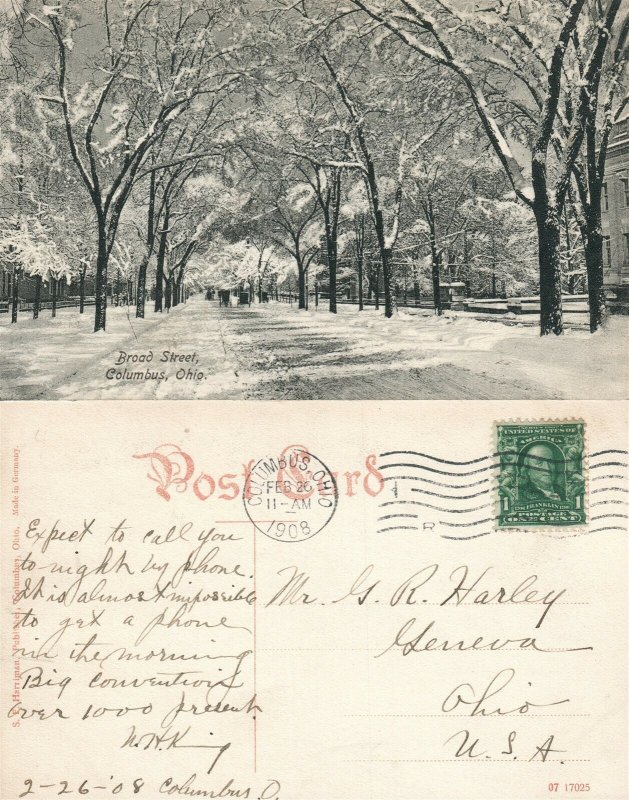 Broad Street,
Columbus, Ohio.
Post Card
COLUMBUS, OHIO
FEB 26
11-AM
1908
UNITED STATES OF
AMERICA
1 1
POSTAGE
ONE CENT
S. F. Harriman, Publisher, Columbus, Ohio. Made in Germany.
Expect to call you
to-night by phone.
It is almost impossible
to get a phone
in the morning
Big convention
over 1000 present.
N.H. King
2-26-'08 Columbus, O.
Mr. G. R. Harley
Geneva
Ohio
U. S. A.
07 17025